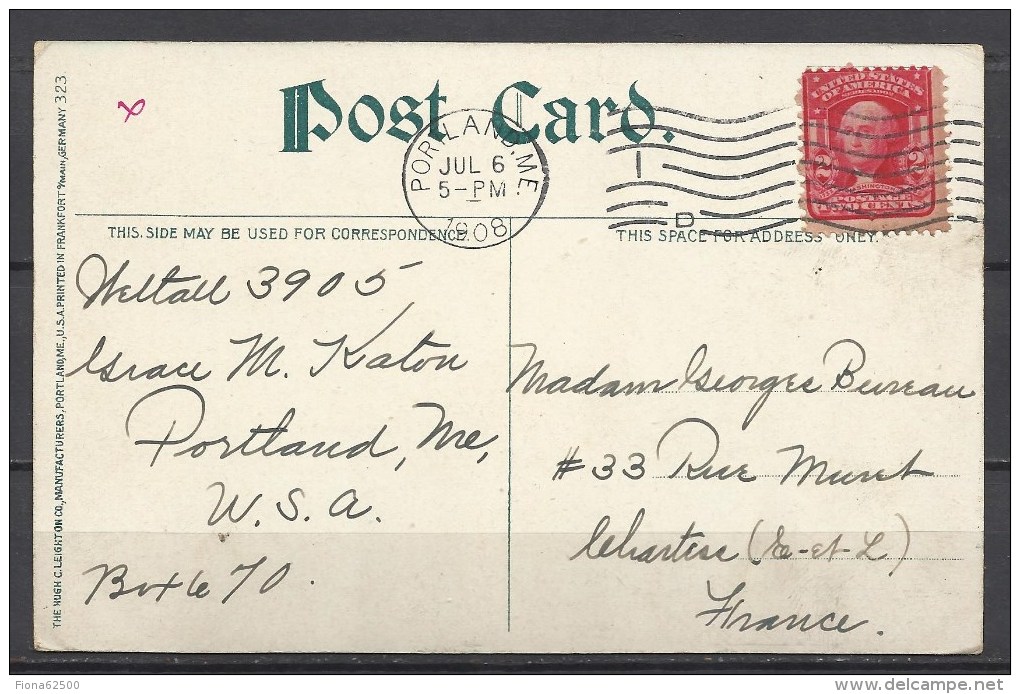 Post Card.
PORTLAND, ME.
JUL 6
5-PM
1908
I
D
UNITED STATES
OF AMERICA
SERIES 1902
2 2
WASHINGTON
POSTAGE
TWO CENTS
THIS SIDE MAY BE USED FOR CORRESPONDENCE.
THIS SPACE FOR ADDRESS ONLY.
Weltall 3905
Grace M. Katon
Portland, Me,
U.S.A.
Box 670.
Madam Georges Bureau
#33 Rue Muret
Chartese (E-et-L)
France.
THE HUGH C. LEIGHTON CO., MANUFACTURERS, PORTLAND, ME., U.S.A. PRINTED IN FRANKFORT o/MAIN, GERMANY 323
Fiona62500
delcampe.net